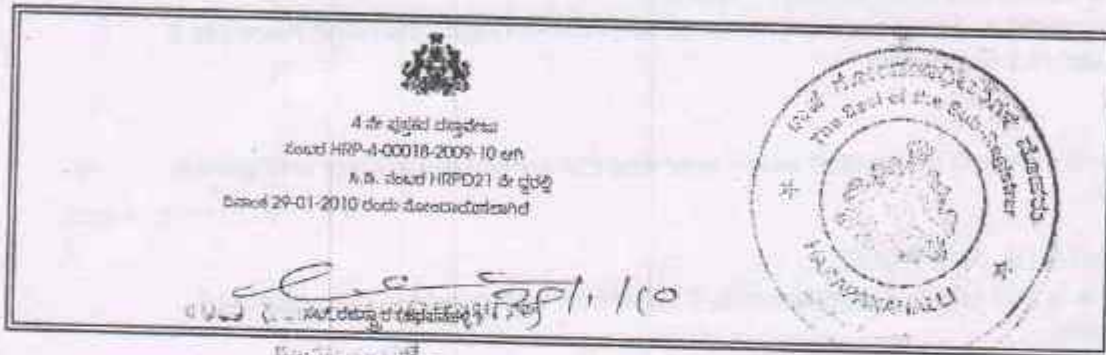 4 ನೇ ಪುಸ್ತಕದ ದಸ್ತಾವೇಜು
ನಂಬರ HRP-4-00018-2009-10 ಆಗಿ
ಸಿ.ಡಿ. ನಂಬರ HRPD21 ನೇ ದ್ದರಲ್ಲಿ
ದಿನಾಂಕ 29-01-2010 ರಂದು ನೋಂದಾಯಿಸಲಾಗಿದೆ
29/1/10
ಉಪ ನೋಂದಣಾಧಿಕಾರಿಗಳ ಮೊಹರು
The Seal of the Sub-Registrar